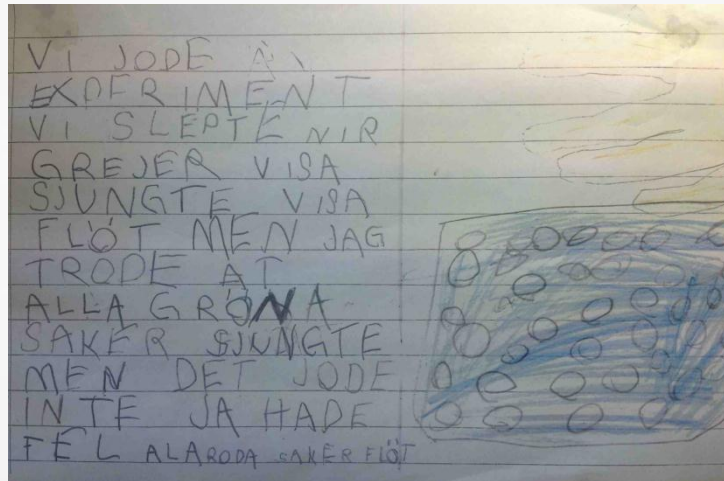 VI JODE Ä
EXPERIMENT
VI SLEPTE NIR
GREJER VISA
SJUNGTE VISA
FLÖT MEN JAG
TRODE AT
ALLA GRÖNA
SAKER SJUNGTE
MEN DET JODE
INTE JA HADE
FEL ALARODA SAKER FLÖT